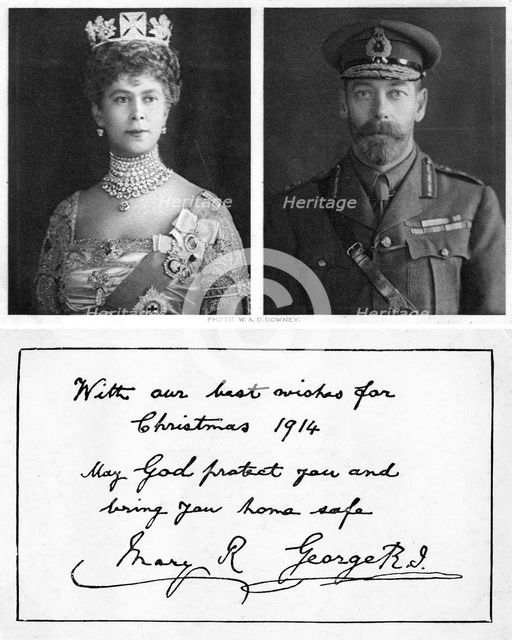 Heritage Heritage
Heritage Heritage
PHOTO. W. & D. DOWNEY.
With our best wishes for
Christmas 1914
May God protect you and
bring you home safe
Mary R George R.I.